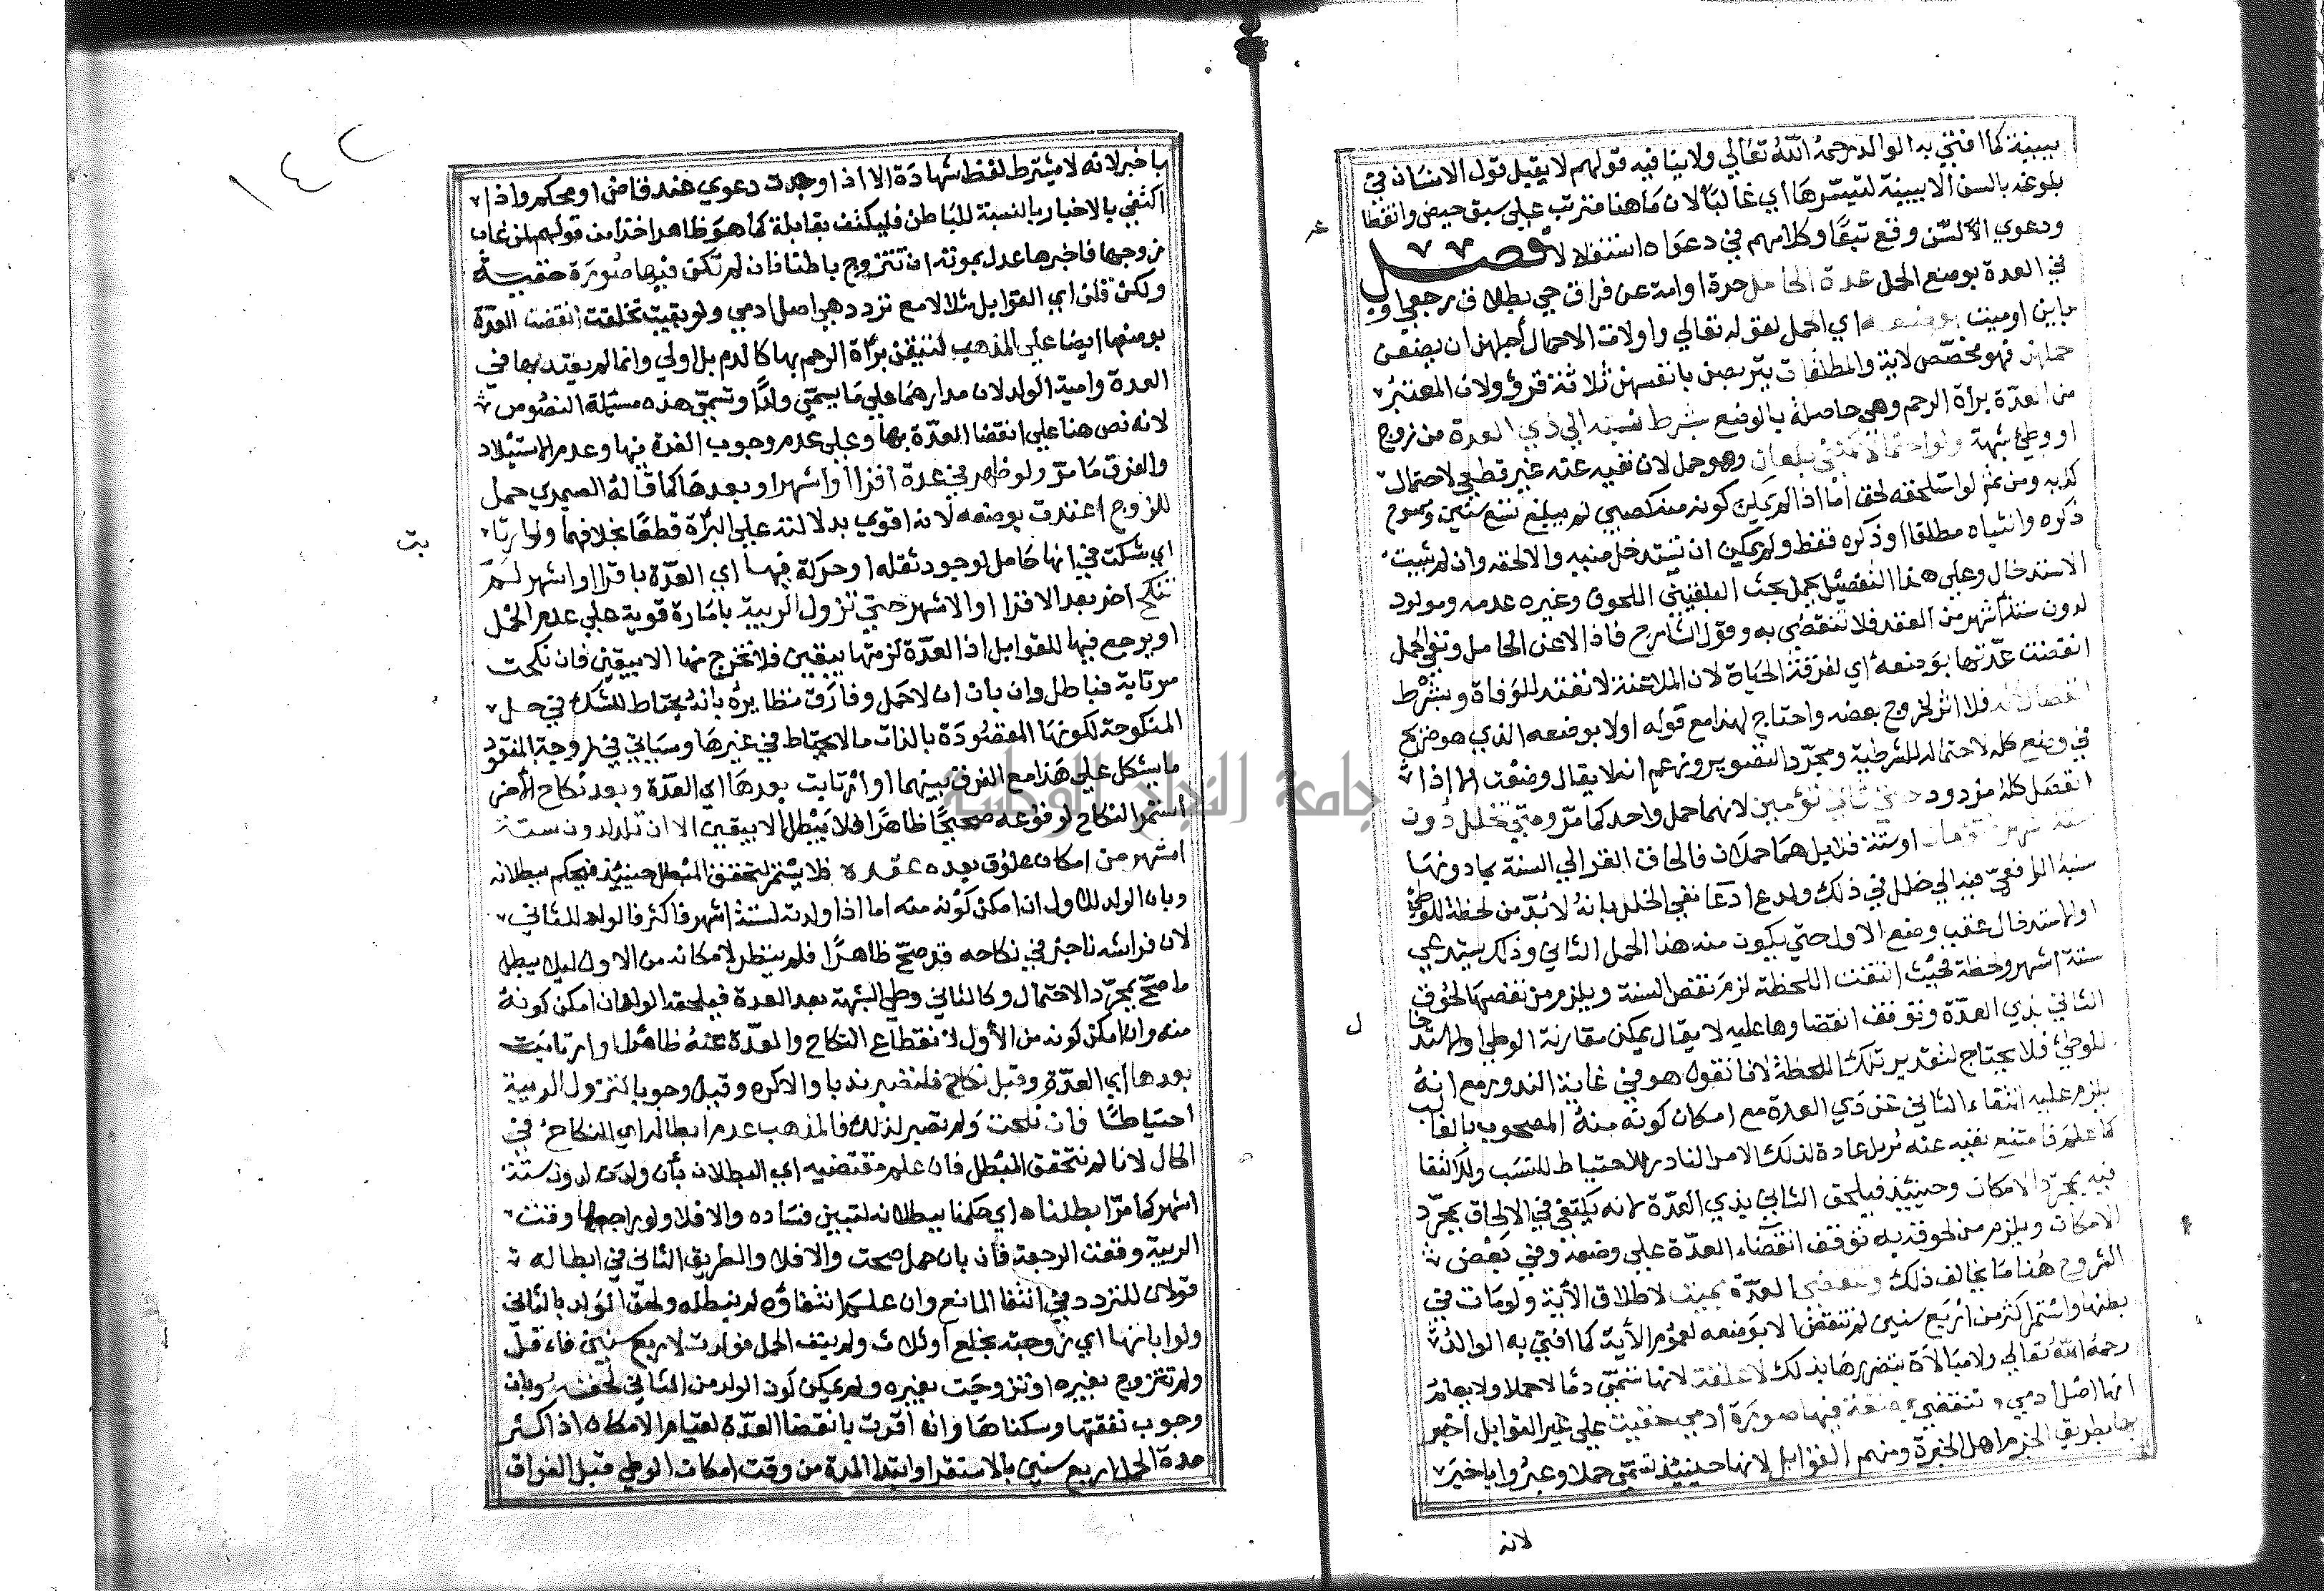 ببينة كما افتي به الوالد رحمه الله تعالي ولا ينافيه قولهم لا يقبل قول الانسان في
بلوغه بالسن الا ببينة لتيسرها اي غالبا لان ما هنا مترتب علي سبق حيض وانقطا
ودعوي السن وقع تبعا وكلامهم في دعواه استقلالا فصل
في العدة بوضع الحمل عدة الحامل حرة او امة عن فراق حي بطلاق رجعي او
باين او ميت بوضعه اي الحمل لقوله تعالي واولات الاحمال أجلهن ان يضعن
حملهن فهو مخصص لاية والمطلقات يتربصن بانفسهن ثلاثة قروء ولان المعتبر
من العدة براة الرحم وهي حاصلة بالوضع بشرط نسبته الي ذي العدة من زوج
او وطئ شبهة ولو احتمالا كمنفي بلعان وهو حمل لان نفيه عنه غير قطعي لاحتمال
كذبه ومن ثم لو استلحقه لحق اما اذا لم يمكن كونه منه كصبي لم يبلغ تسع سنين وممسوح
ذكره وانثياه مطلقا او ذكره فقط ولم يمكن ان تستدخل منيه والا لحقه وان لم يثبت
الاستدخال وعلي هذا التفصيل يحمل بحث البلقيني اللحوق وغيره عدمه ومولود
لدون ستة اشهر من العقد فلا تنقضي به وقول الشارح فاذا لاعن الحامل ونفي الحمل
انقضت عدتها بوضعه اي لفرقة الحياة لان الملاعنة لا تعتد للوفاة وبشرط
انفصال كله فلا اثر لخروج بعضه واحتاج لهذا مع قوله اولا بوضعه الذي هو صريح
في وضع كله لاحتماله للشرطية ومجرد التصوير وزعم انه لا يقال وضعت الا اذا
انفصل كله مردود حتي ثاني توءمين لانهما حمل واحد كما مر ومتي تخلل دون
ستة اشهر فتوءمان او ستة فلا بل هما حملان فالحاق الغزالي الستة بما دونها
نسبه الرافعي فيه الي خلل في ذلك ولا مع ادعا نفي الخلل بانه لا بد من لحظة للوطئ
او الاستدخال عقب وضع الاول حتي يكون منه هذا الحمل الثاني وذلك يستدعي
ستة اشهر ولحظة فحيث انتفت اللحظة لزم نقص الستة ويلزم من نقصها لحوق
الثاني بذي العدة وتوقف انقضاوها عليه لا يقال يمكن مقارنة الوطئ او الاستدخا
للوطئ فلا يحتاج لتقدير تلك اللحظة لانا نقول هو في غاية الندور مع انه
يلزم عليه انتفاء الثاني عن ذي العدة مع امكان كونه منه المصحوب بالغالب
كما علم فامتنع نفيه عنه مراعاة لذلك الامر النادر للاحتياط للنسب واكتفا
فيه بمجرد الامكان وحينئذ فيلحق الثاني بذي العدة لانه يكتفي في الالحاق بمجرد
الامكان ويلزم من لحوقه به توقف انقضاء العدة علي وضعه وفي بعض
الشروح هنا ما يخالف ذلك وتنقضي العدة بميت لاطلاق الآية ولو مات في
بطنها واستمر اكثر من اربع سنين لم تنقض الا بوضعه لعموم الآية كما افتي به الوالد
رحمه الله تعالي ولا مبالاة بتضررها بذلك لا علقة لانها تسمي دما لا حملا ولا يعلم
انها اصل ادمي وتنقضي بمضغة فيها صورة ادمي خفيت علي غير القوابل اخبر
بها بطريق الجزم اهل الخبرة ومنهم القوابل لانها حينئذ تسمي حملا وعبروا باخبر
لانه
باخبر لانه لا يشترط لفظ شهادة الا اذا وجدت دعوي عند قاض او محكم واذا
اكتفي بالاخبار بالنسبة للباطن فليكتف بقابلة كما هو ظاهر اخذا من قولهم لمن غاب
زوجها فاخبرها عدل بموته ان تتزوج باطنا فان لم تكن فيها صورة خفية
ولكن قلن اي القوابل مثلا لا مع تردد هي اصل ادمي ولو بقيت تخلقت انقضت العدة
بوضعها ايضا علي المذهب لتيقن براة الرحم بها كالدم بل اولي وانما لم يعتد بها في
العدة وامية الولد لان مدارهما علي ما يسمي ولدا وتسمي هذه مسئلة النصوص
لانه نص هنا علي انقضا العدة بها وعلي عدم وجوب الغرة فيها وعدم الاستيلاد
والفرق ما مر ولو ظهر في عدة اقرا او اشهر او بعدها كما قاله الصيمري حمل
للزوج اعتدت بوضعه لانه اقوي بدلالته علي البراة قطعا بخلافهما ولو ارتابت
اي شكت في انها حامل لوجود ثقل او حركة فيها اي العدة باقرا او اشهر لم
تنكح اخر بعد الاقرا او الاشهر حتي تزول الريبة بامارة قوية علي عدم الحمل
او يرجع فيها للقوابل اذا العدة لزمتها بيقين فلا تخرج منها الا بيقين فان نكحت
مرتابة فباطل وان بان ان لا حمل وفارق نظايره بانه يحتاط للشك في حل
المنكوحة لكونها المقصودة بالذات ما لا يحتاط في غيرها وسياتي في زوجة المفقود
ما يشكل علي هذا مع الفرق بينهما او ارتابت بعدها اي العدة وبعد نكاح لآخر
استمر النكاح لوقوعه صحيحا ظاهرا فلا يبطل الا بيقين الا ان تلد لدون ستة
اشهر من امكان علوق بعده عقده فلا يستمر لتحقق المبطل حينئذ فيحكم ببطلانه
وبان الولد للاول ان امكن كونه منه اما اذا ولدته لستة اشهر فاكثر فالولد للثاني
لان فراشه ناجز في نكاحه قد صح ظاهرا فلم ينظر لامكانه من الاول ليلا يبطل
ما صح بمجرد الاحتمال وكالثاني وطي الشبهة بعد العدة فيلحقه الولد ان امكن كونه
منه وان امكن كونه من الأول لانقطاع النكاح والعدة عنه ظاهرا او ارتابت
بعدها اي العدة وقبل نكاح فلتصبر ندبا والا كره وقيل وجوبا لتزول الريبة
احتياطا فان نكحت ولم تصبر لذلك فالمذهب عدم ابطاله اي النكاح في
الحال لانا لم نتحقق المبطل فان علم مقتضيه اي البطلان بأن ولدت لدون ستة
اشهر كما مر ابطلناه اي حكمنا ببطلانه لتبين فساده والا فلا ولو راجعها وقت
الريبة وقفت الرجعة فان بان حمل صحت والا فلا والطريق الثاني في ابطاله
قولان للتردد في انتفا المانع وان علم انتفاؤه لم نبطله ولحق الولد بالثاني
ولو ابانها اي زوجته بخلع او ثلاث ولم ينف الحمل فولدت لاربع سنين فاقل
ولم تتزوج بغيره او تزوجت بغيره ولم يمكن كون الولد من الثاني لحقه وبان
وجوب نفقتها وسكناها وان اقرت بانقضا العدة لقيام الامكان اذ اكثر
مدة الحمل اربع سنين بالاستقرا وابتدا المدة من وقت امكان الوطي قبل الفراق
١٤٢
جامعة النجاح الوطنية